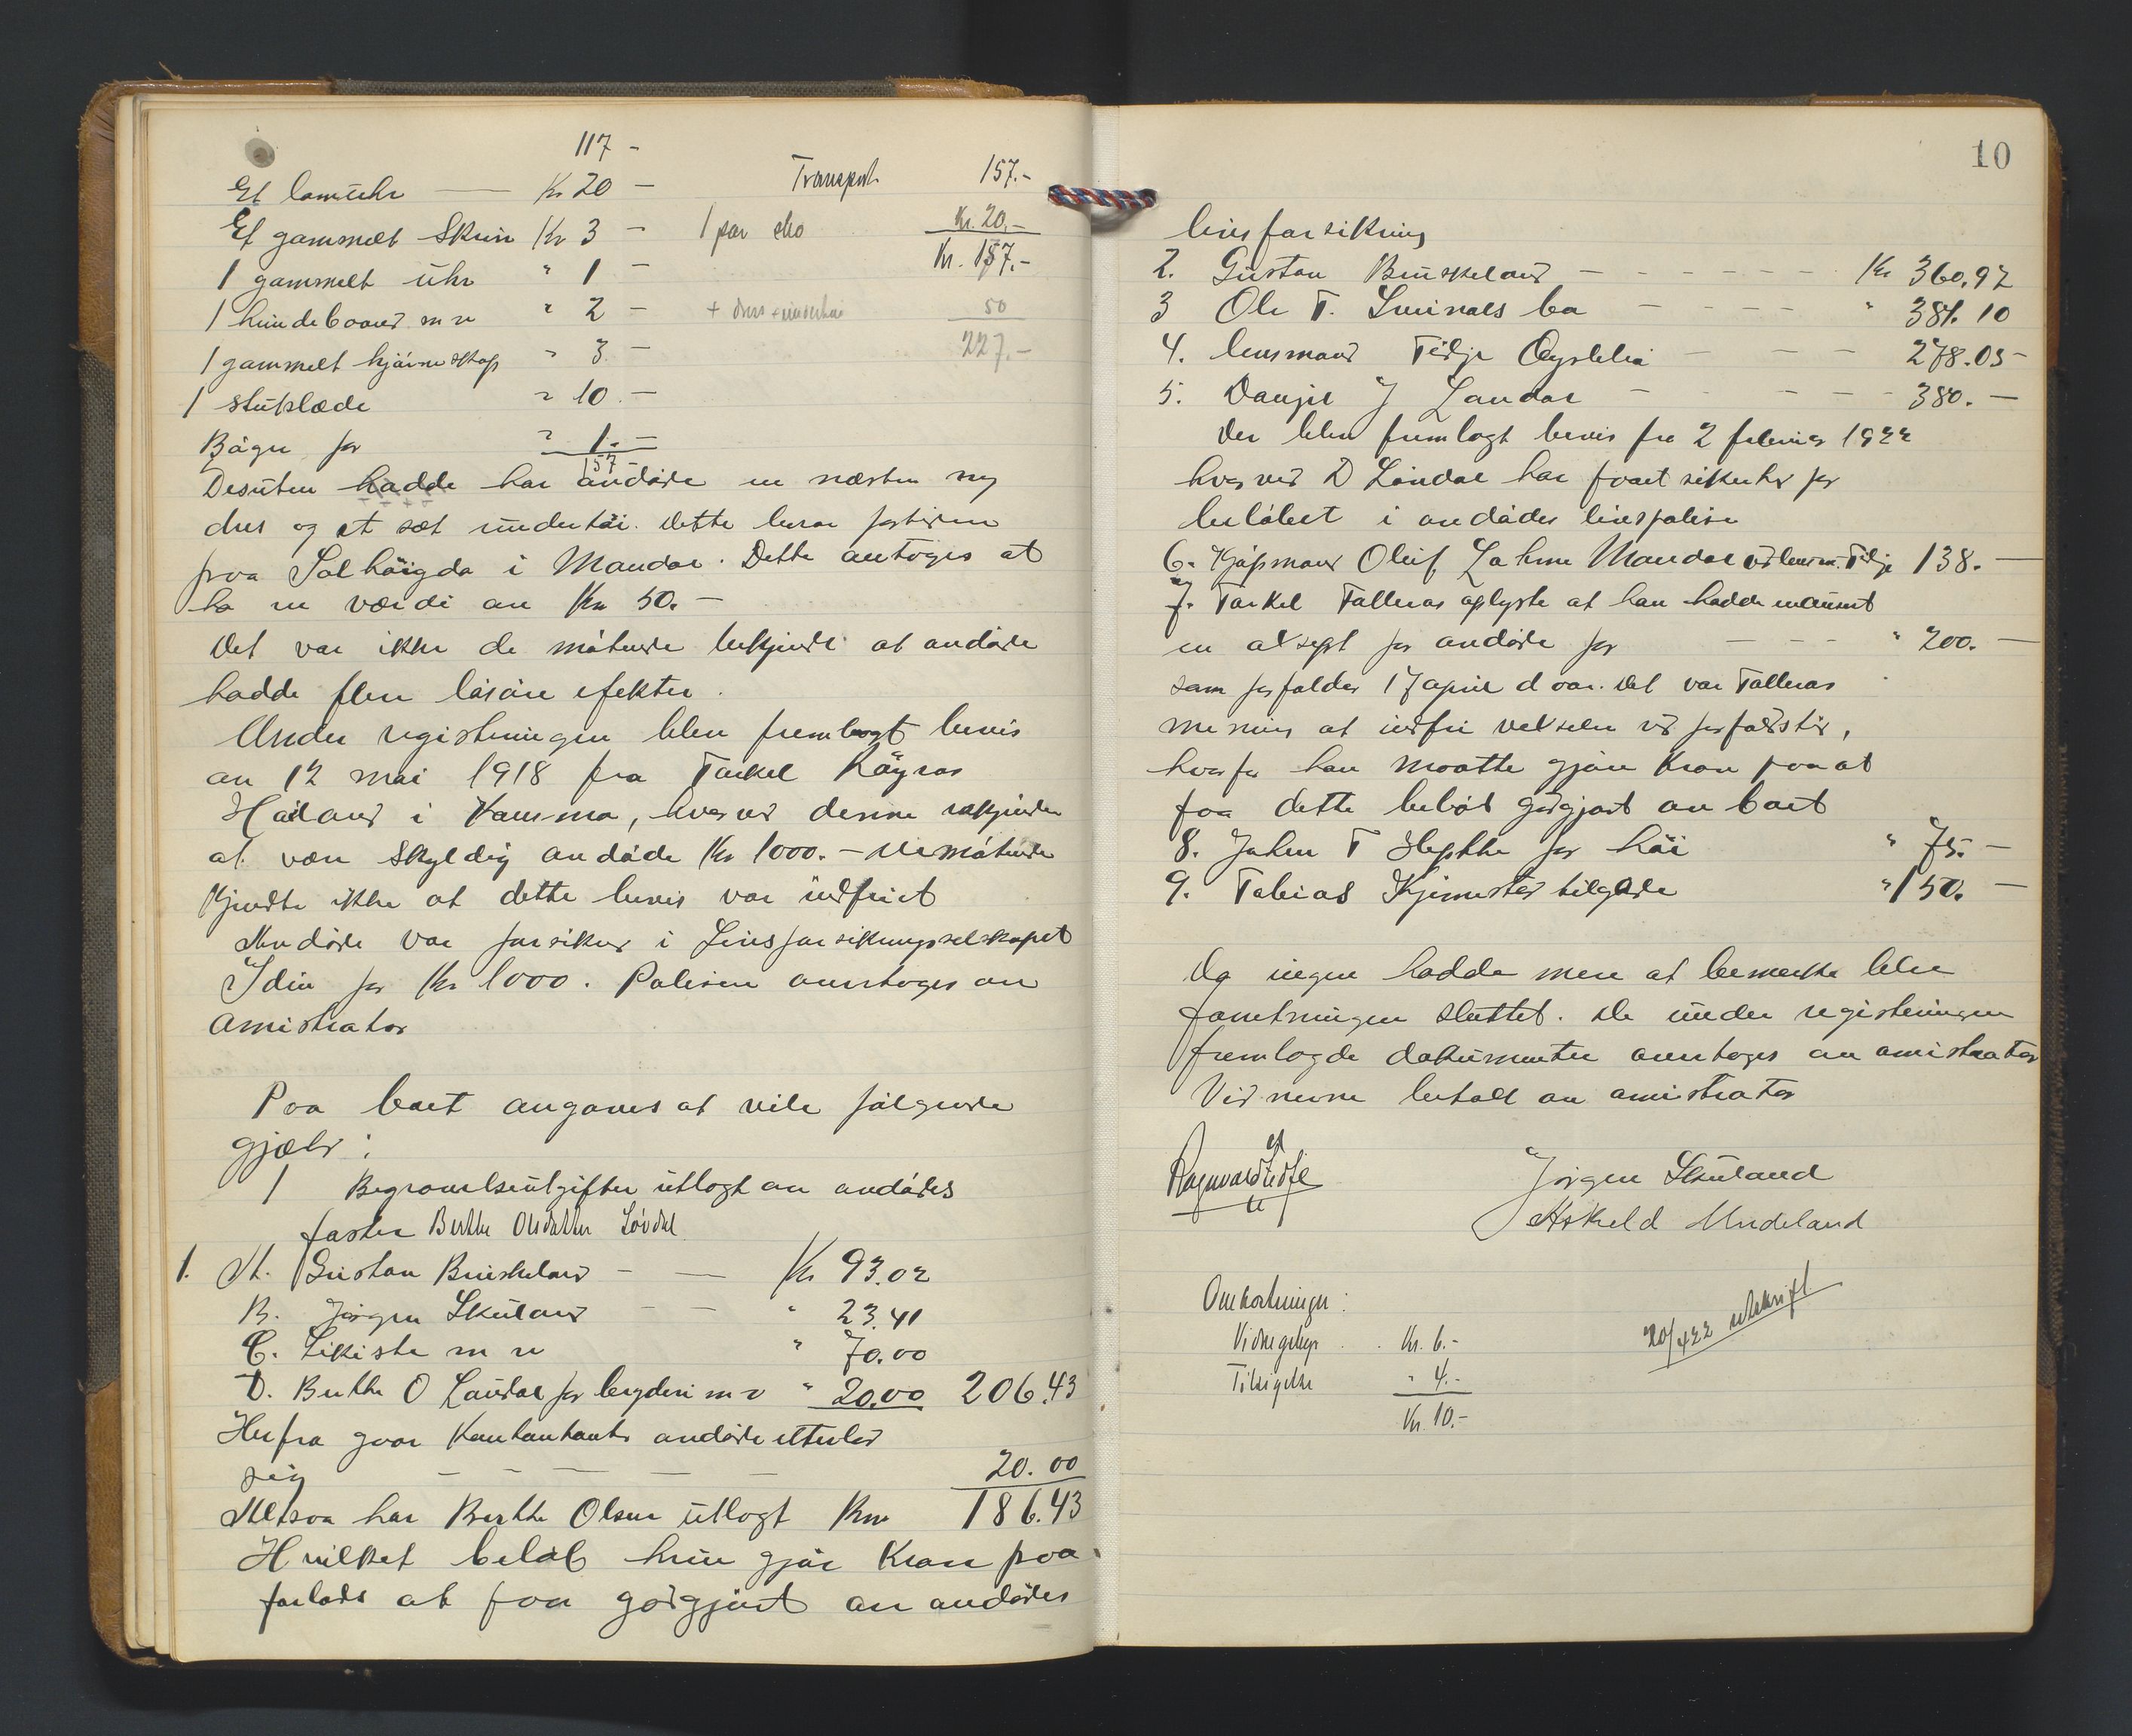 117 -
Et lomühr — Kr 20 -
Et gammelt Skrin Kr 3 -
1 gammelt ühr " 1 -
1 hündebaand m v " 2 -
1 gammelt hjørneskap " 3 -
1 stükløde " 10. -
Bøger for " 1. -
157 -
Transport 157.-
1 par sko Kr. 20.-
Kr. 157.-
+ dres + ündertøi 50
227.-
Desüten hadde har avdøde en næsten ny
dres og et sæt ündertøi. Dette beror fortiden
paa Solhøigda i Mandal. Dette antoges at
ha en værdi av Kr 50. -
Det var ikke de møtende bekjendt at avdøde
hadde flere løsøre efekter.
Under registreringen blev fremlagt bevis
av 12 mai 1918 fra Tarkel Høyras
Høiland i Vansma, hvorved denne erkjender
at være skyldig avdøde Kr 1000. - De møtende
kjendte ikke at dette bevis var indfriet
Avdøde var forsikret i Livsforsikringsselskapet
Idün for Kr 1000. Polisen overtoges av
amistrator
Paa boet angaves at vile følgende
gjæld:
1 Begravelseütgifter ütlagt av avdødes
faster Berthe Olsdatter Løvdal
1. A. Güstav Brüskeland - — Kr 93.02
B. Jørgen Skuland - — " 23.41
C. Likiste m v " 70.00
D. Berthe O Laudal for brydere m v " 20.00 206.43
Herfra gaar Kontantants avdøde etterlod
sig — — — — — 20.00
Altsaa har Berthe Olsen ütlagt Kr 186.43
Hvilket beløb hün gjør Krav paa
forlods at faa godgjort av avdødes
10
livsforsikring
2. Güstav Brüskeland - - - - - - Kr 360,92
3 Ole T. Lauvdals bo - - - - " 381.10
4. lensmand Tedje Øyslebø - - - 278.05 -
5. Daniel J Laudal - - - - - 380. -
Der blev fremlagt bevis fra 2 februar 1922
hvorved D Laudal har faaet sikerhet for
beløbet i avdødes livspolise
6. Kjøpmand Oluf Lohne Mandal ved lensm. Tedje 138. -
7. Tarkel Falleras oplyste at han hadde endossert
en aksept for avdøde for - - - " 200. -
som forfalder 17 april d aar. Det var Falleras
mening at indfri vekselen ved forfaldstid,
hvorfor han maatte gjøre Krav paa at
faa dette beløb godgjort av boet
8. Johan T Heptke for høi " 75. -
9. Tobias Kjirnestad tilgode " 150. -
Da ingen hadde mere at bemerke blev
forretningen slüttet. De ünder registreringen
fremlagde dokümenter overtoges av amistrator
Vidnerne betalt av amistrator
Ragnvald Tedje
Jørgen Skuland
Askield Undeland
Omkostninger:
Vidnegebyr . . Kr. 6.-
Tilsigelse " 4.-
Kr. 10.-
20/4 22 utskrift